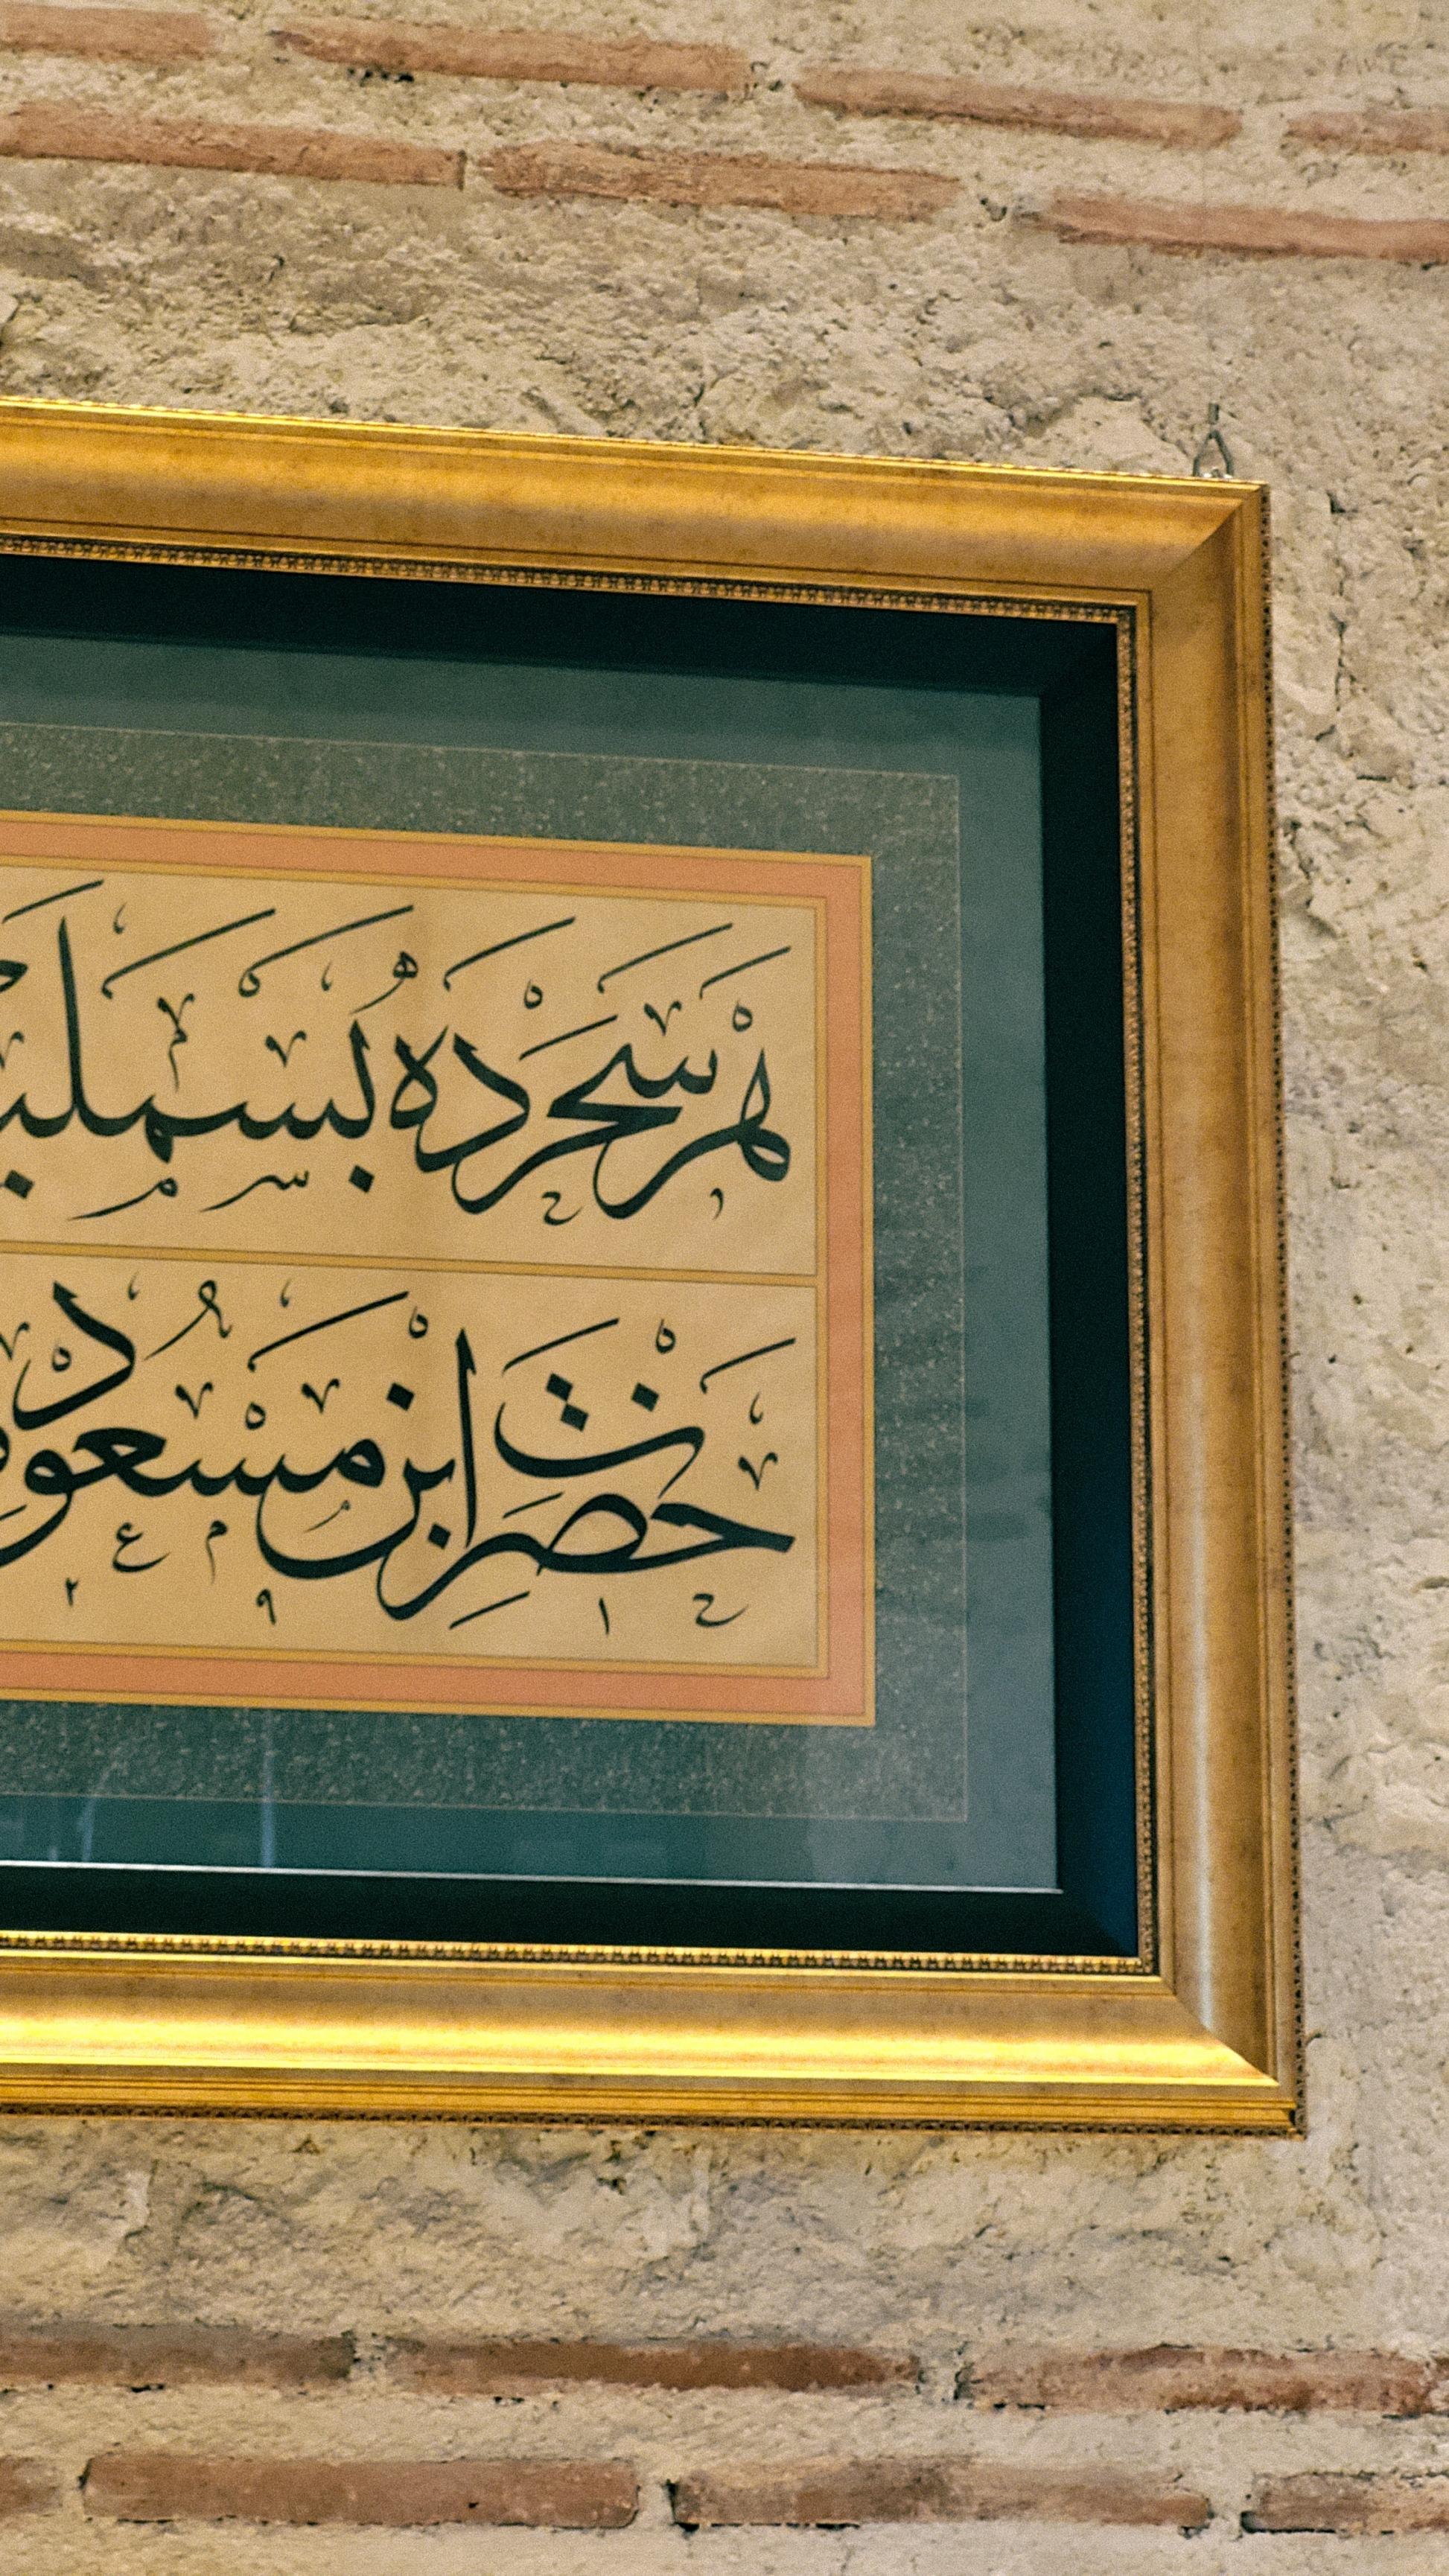 هَرْ سَحَرْدَه بُسْمَلَيـ
حَضْرَتِ اِبْنِ مَسْعُود